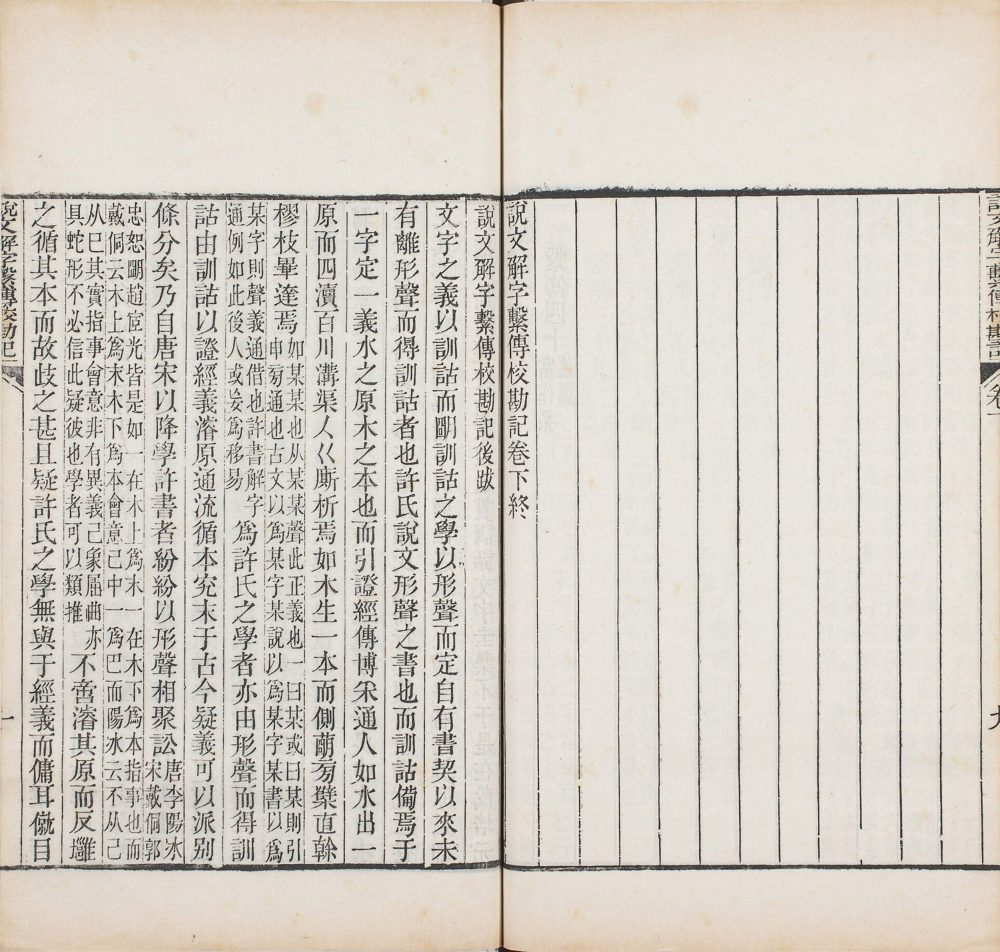 說文解字繫傳校勘記
卷下
九
說文解字繫傳校勘記卷下終
說文解字繫傳校勘記後跋
文字之義以訓詁而朙訓詁之學以形聲而定自有書契以來未
有離形聲而得訓詁者也許氏說文形聲之書也而訓詁備焉于
一字定一義水之原木之本也而引證經傳博釆通人如水出一
原而四瀆百川溝渠人巜厮析焉如木生一本而側萠㫄櫱直榦
樛枝畢達焉
如某某也从某某聲此正義也一曰某或曰某則引
申㫄通也古文以爲某字某說以爲某字某書以爲
某字則聲義通借也許書解字
通例如此後人或妄爲移易
爲許氏之學者亦由形聲而得訓
詁由訓詁以證經義濬原通流循本究末于古今疑義可以派別
條分矣乃自唐宋以降學許書者紛紛以形聲相聚訟
唐李陽冰
宋戴侗郭
忠恕朙趙宧光皆是如一在木上爲末一在木下爲本指事也而
戴侗云木上爲末木下爲本會意己中一爲巴而陽冰云不从己
从巳其實指事會意非有異義己象屈曲亦
具蛇形不必信此疑彼也學者可以類推
不啻濬其原而反壅
之循其本而故歧之甚且疑許氏之學無與于經義而傭耳僦目
說文解字繫傳校勘記
一